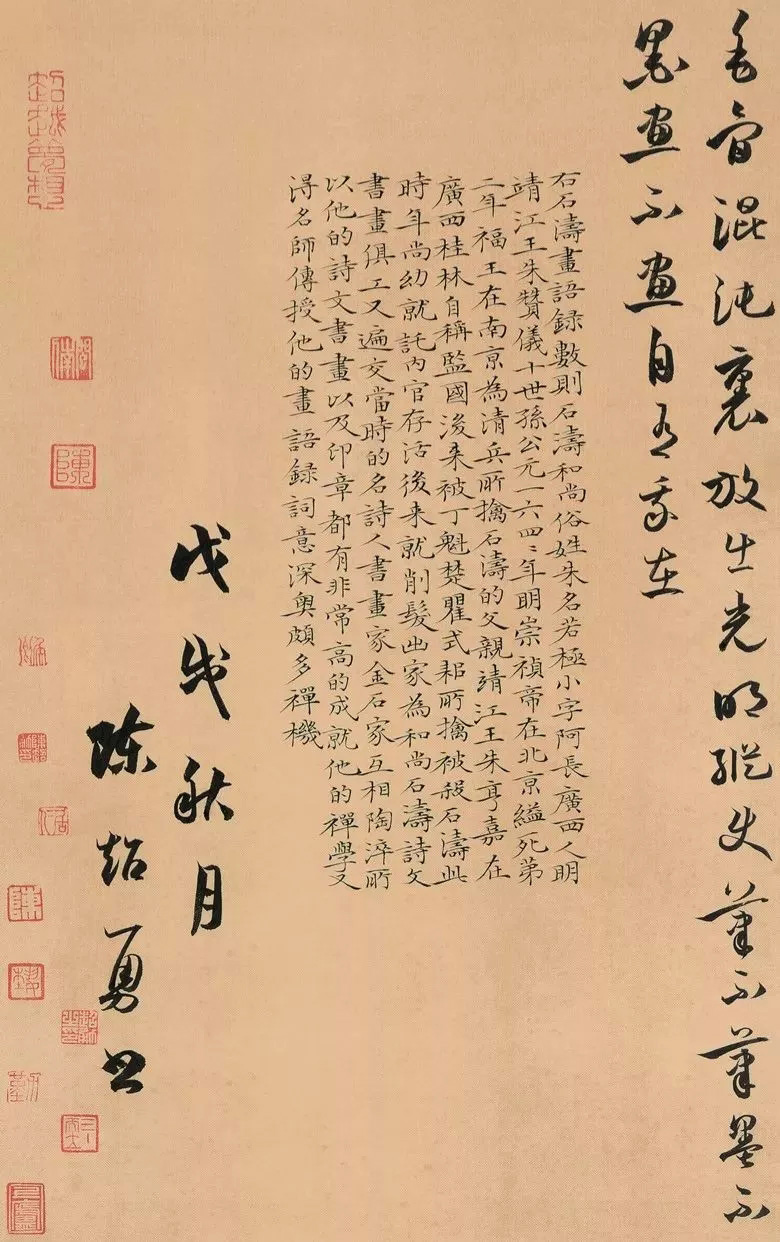 毛骨混沌裏放出光明縱使筆不筆墨不
墨畫不畫自有我在
右石濤畫語録數則石濤和尚俗姓朱名若極小字阿長廣西人明
靖江王朱贊儀十世孫公元一六四〻年明崇禎帝在北京縊死第
二年福王在南京為清兵所擒石濤的父親靖江王朱亨嘉在
廣西桂林自稱監國後来被丁魁楚瞿式耜所擒被殺石濤此
時年尚幼就託內官存活後来就削髮出家為和尚石濤詩文
書畫俱工又遍交當時的名詩人書畫家金石家互相陶淬所
以他的詩文書畫以及印章都有非常高的成就他的禪學又
得名師傳授他的畫語録詞意深奧頗多禪機
戊戌秋月
陈超勇书